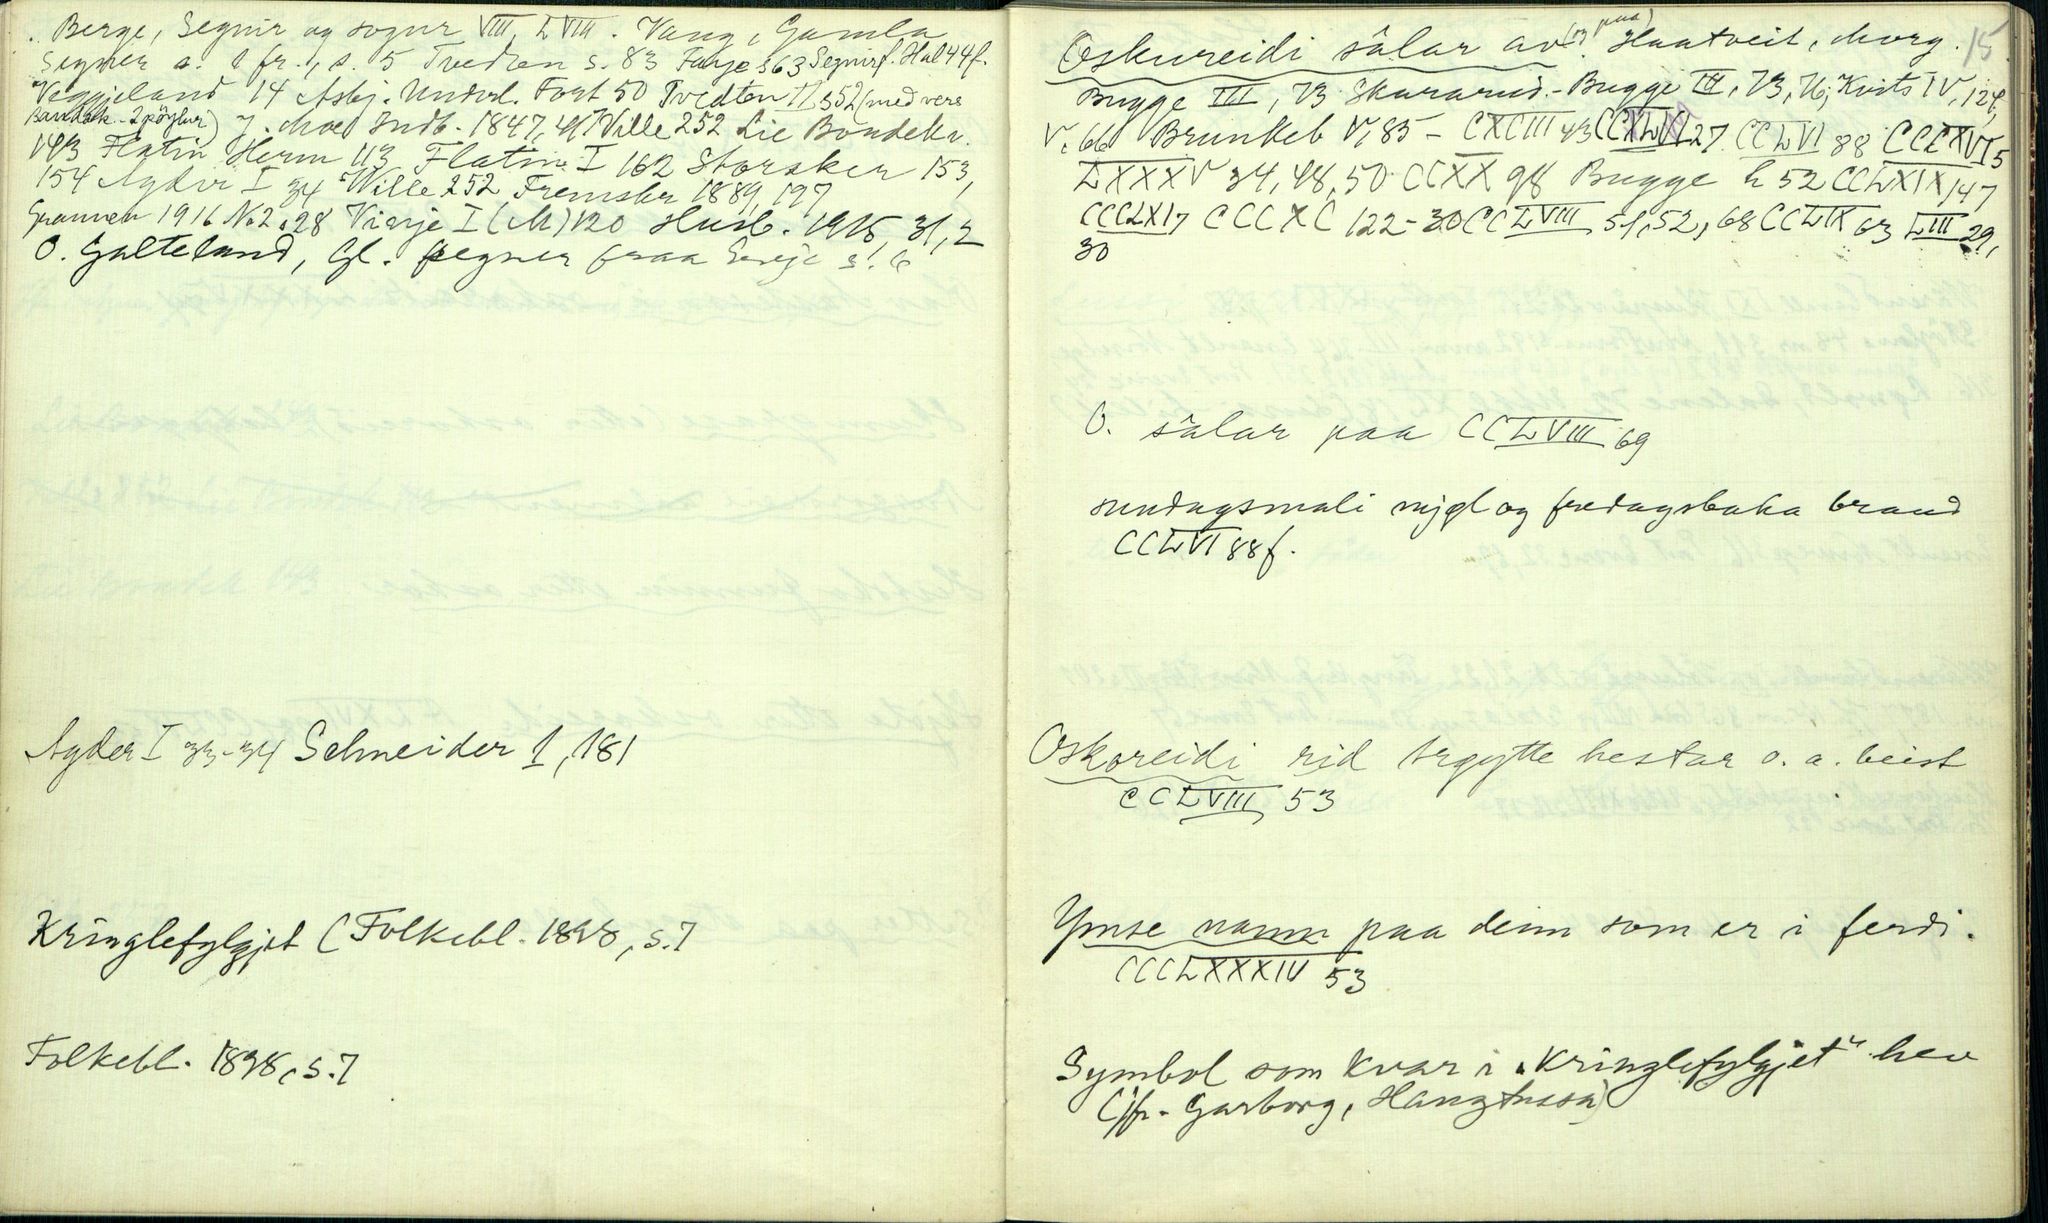 Berge, Segnir og sogur VIII, LVIII. Vang, Gamla
Segner s. 1 fr., s. 5 Tvedten s. 83 s 63 Segnir f. Hal 44 f.
Veggjeland 14 Asbj. Fort 50 Tvedten II s 52 (med vers
Bandak - J. Moe Indb. 1847, Wille 252 Lie Bondekv.
143 Flatin Herm 113 Flatin I 162 Storaker 153,
154 Agder I 34 Wille 252 Fremskr 1889, 197
Grannen 1916 No 2. 28 I (M) 120 Husb. 1915, 31, 2
O. Galteland, Gl. segner fraa
Agder I 33-34 Schneider 1, 181
Kringlefylgjet (Folkebl. 1898, s. 7
Folkebl. 1898, s. 7
15
Oskureidi sålar av (og paa) Haatveit, Morg.
Bugge III, 73 Skararud. - Bugge III, 73, 76, Kvits IV, 124,
V. 66 Brunkeb V, 85 - CXCIII 43 27 CCLVI 88 CCCXVI 5
LXXXV 34, 48, 50 CCXX 98 Bugge h 52 CCLXIX 147
CCCLXI 7 CCCXC 122-30 CCLVIII 51, 52, 68 CCLIX 63 LIII 29,
30
O. sålar paa CCLVIII 69
sundagsmali mjøl og fredagsbaka braud
CCLVI 88 f.
Oskoreidi rid trøytte hestar o. a. beist
CCLVIII 53
Ymse namn paa deim som er i ferdi.
CCCLXXXIV 53
Symbol som kvar i "Kringlefylgjet" hev
(jfr. Garborg, Haugtussa)